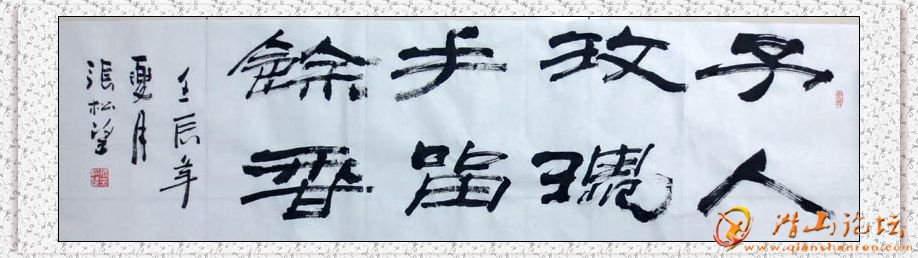 予人
玫瑰
手留
餘香
壬辰年
夏月
張松望
潜山论坛
www.qianshanren.com